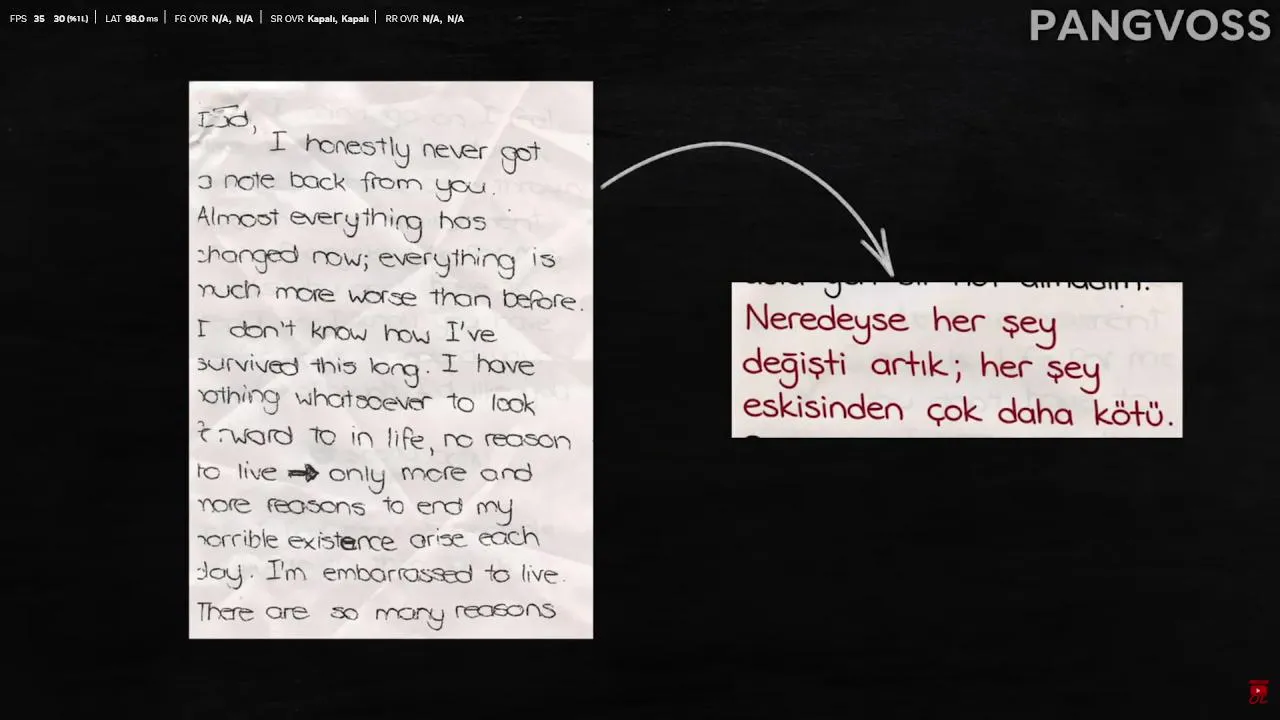 FPS 35 30 (%1L) | LAT 98.0 ms | FG OVR N/A, N/A | SR OVR Kapalı, Kapalı | RR OVR N/A, N/A
PANGVOSS
I honestly never got
a note back from you.
Almost everything has
changed now; everything is
much more worse than before.
I don't know how I've
survived this long. I have
nothing whatsoever to look
to in life, no reason
to live → only more and
more reasons to end my
horrible existence arise each
day. I'm embarrassed to live.
There are so many reasons
Neredeyse her şey
değişti artık; her şey
eskisinden çok daha kötü.